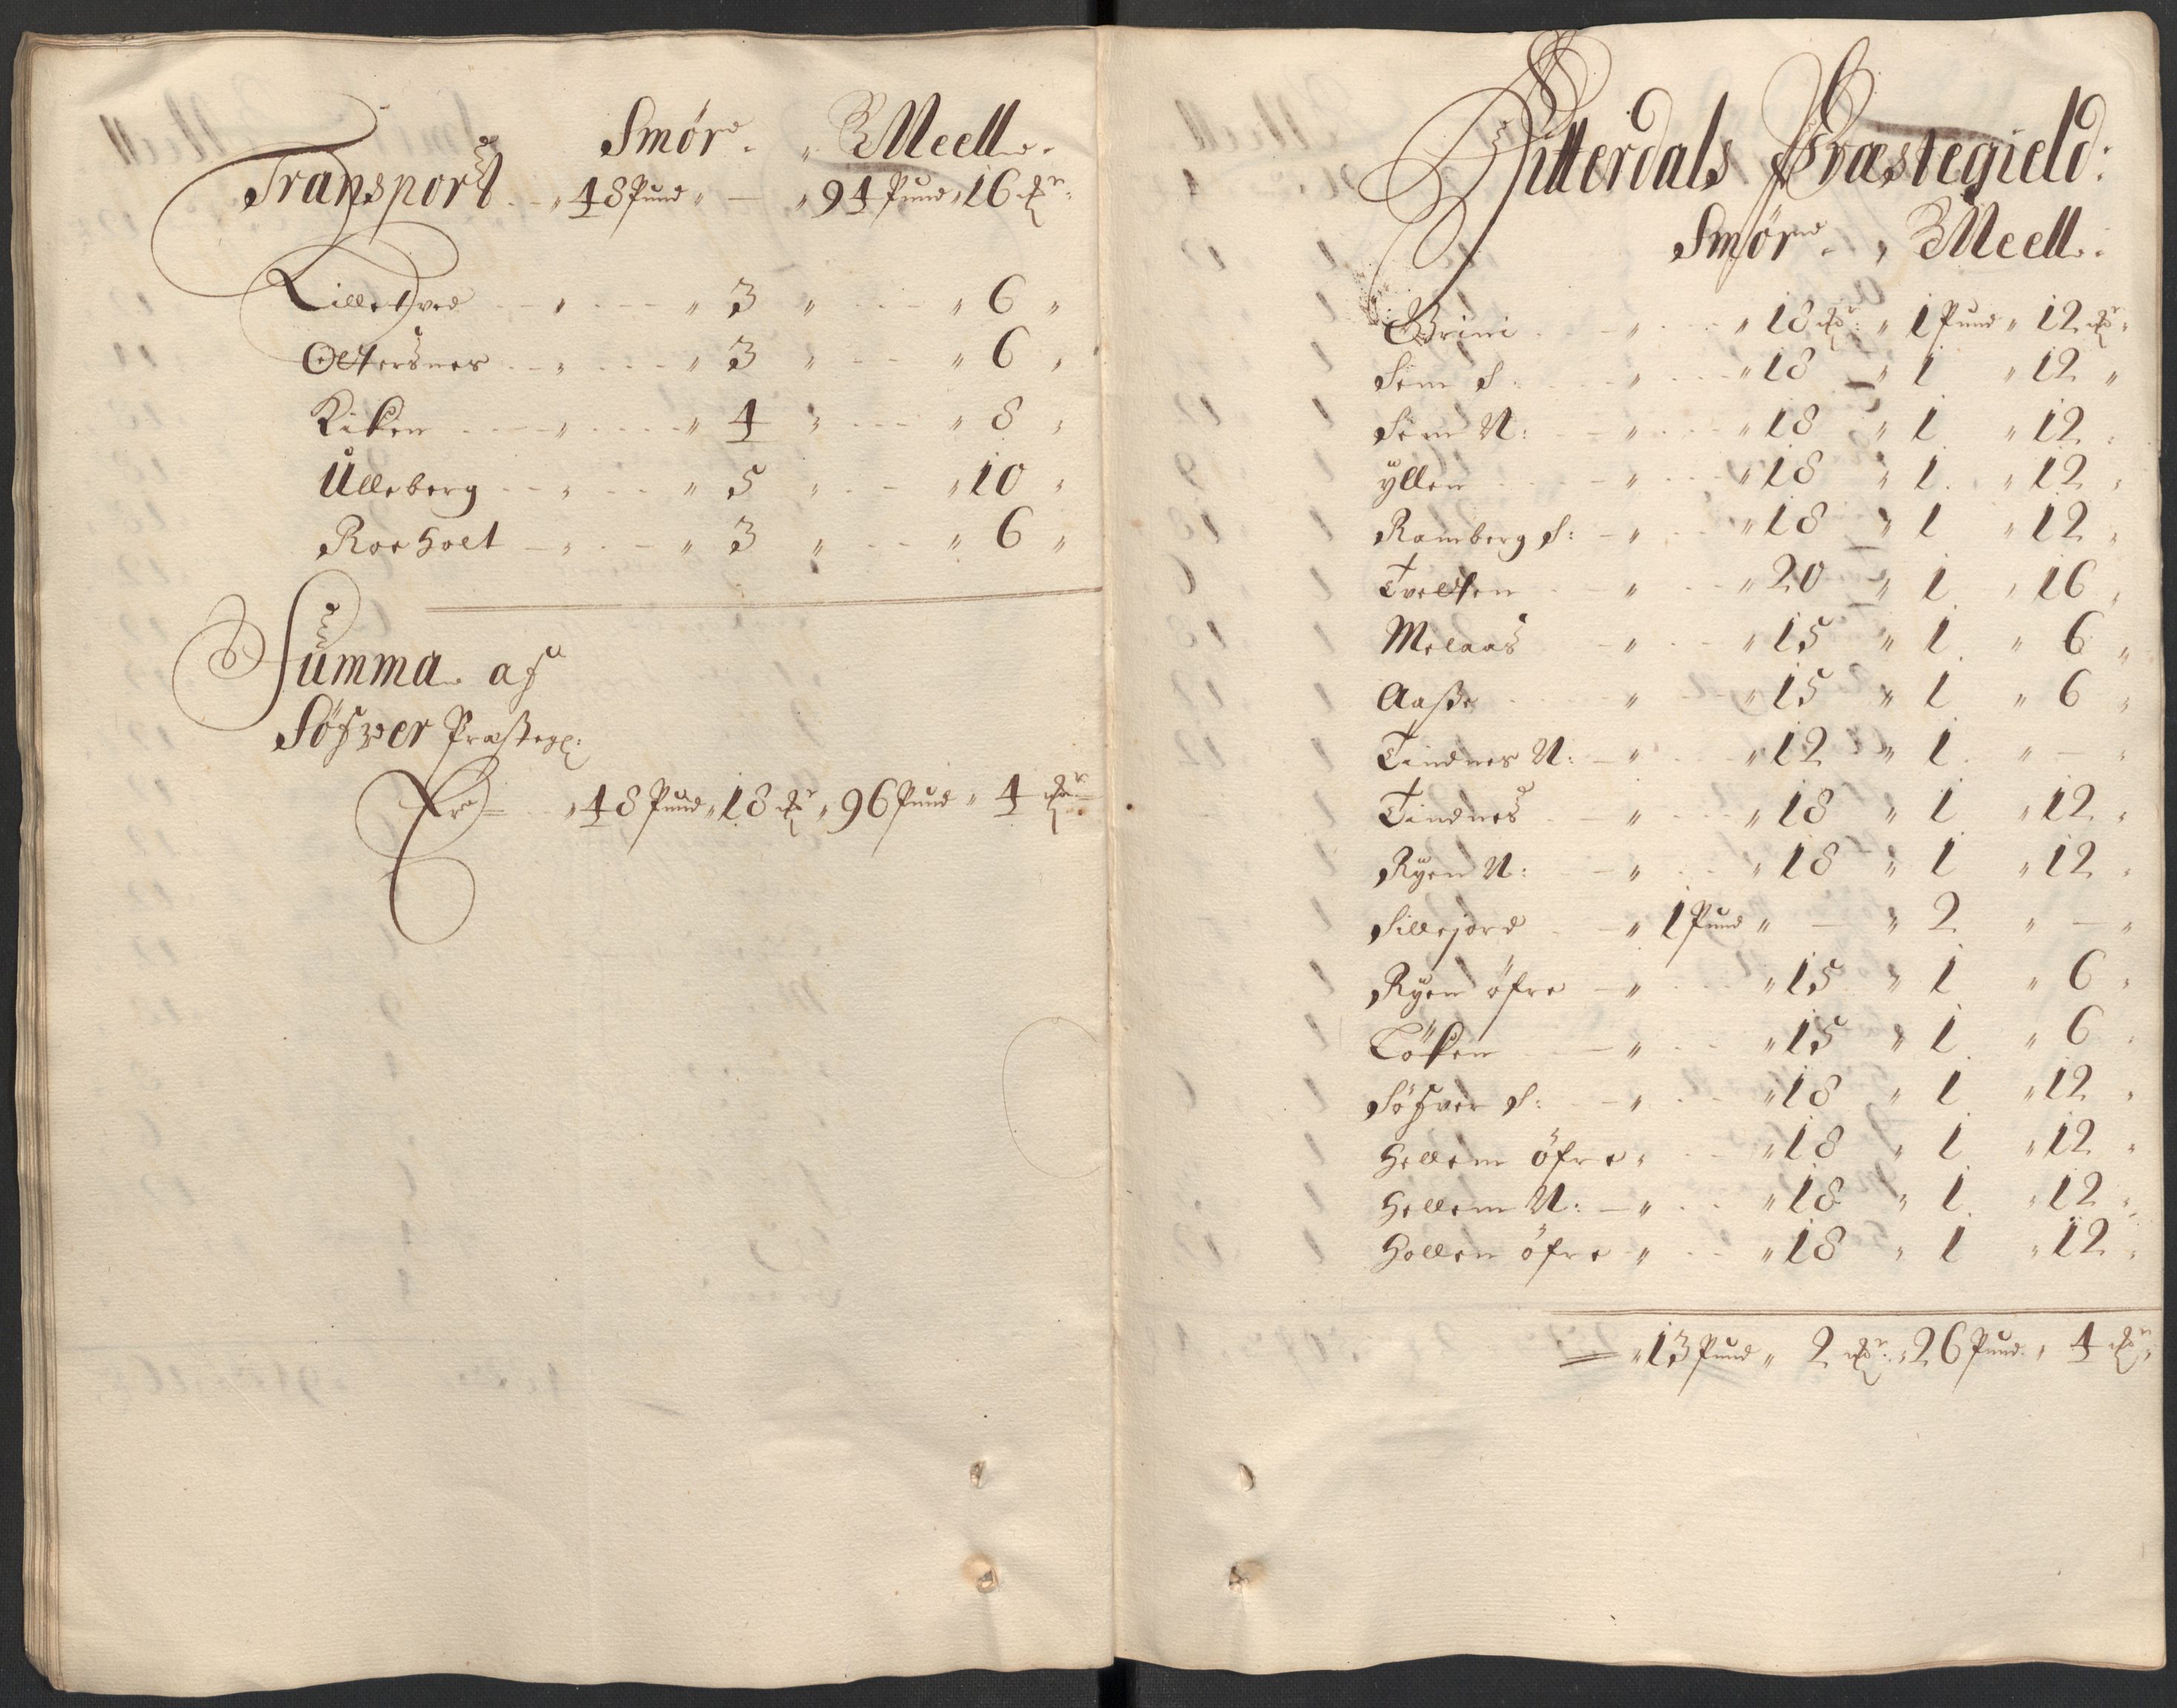 Smør. „ Meell.
Transport „ 48 Pund „ — „ 94 Pund „ 16 ℔r
Lilletved „ „ 3 „ „ 6 „
Oltersnes „ „ 3 „ „ 6 „
Riken „ „ 4 „ „ 8 „
Ulleberg „ „ 5 „ „ 10 „
Roeholt „ „ 3 „ „ 6 „
Summa af
Søfver Præstegl:
Er „ 48 Pund „ 18 ℔r „ 96 Pund „ 4 ℔r
Hitterdals Præstegield:
Smør „ Meell:
Grini „ „ 18 ℔r „ 1 Pund „ 12 ℔r „
Sem S: „ „ 18 „ 1 „ 12 „
Sem N: „ „ 18 „ 1 „ 12 „
yllen „ „ 18 „ 1 „ 12 „
Ramberg S: „ „ 18 „ 1 „ 12 „
Tvedten „ „ 20 „ 1 „ 16 „
Melaas „ „ 15 „ 1 „ 6 „
Aaße „ „ 15 „ 1 „ 6 „
Tindnes N: „ „ 12 „ 1 „ — „
Tindnes „ „ 18 „ 1 „ 12 „
Ryen N: „ „ 18 „ 1 „ 12 „
Sillejord „ 1 Pund „ — „ 2 „ — „
Ryen öfre „ „ 15 „ 1 „ 6 „
Löken „ „ 15 „ 1 „ 6 „
Søfver S: „ „ 18 „ 1 „ 12 „
Hellem öfre „ „ 18 „ 1 „ 12 „
Hellem N: „ „ 18 „ 1 „ 12 „
Hollen öfre „ „ 18 „ 1 „ 12 „
„ 13 Pund „ 2 ℔r „ 26 Pund „ 4 ℔r „